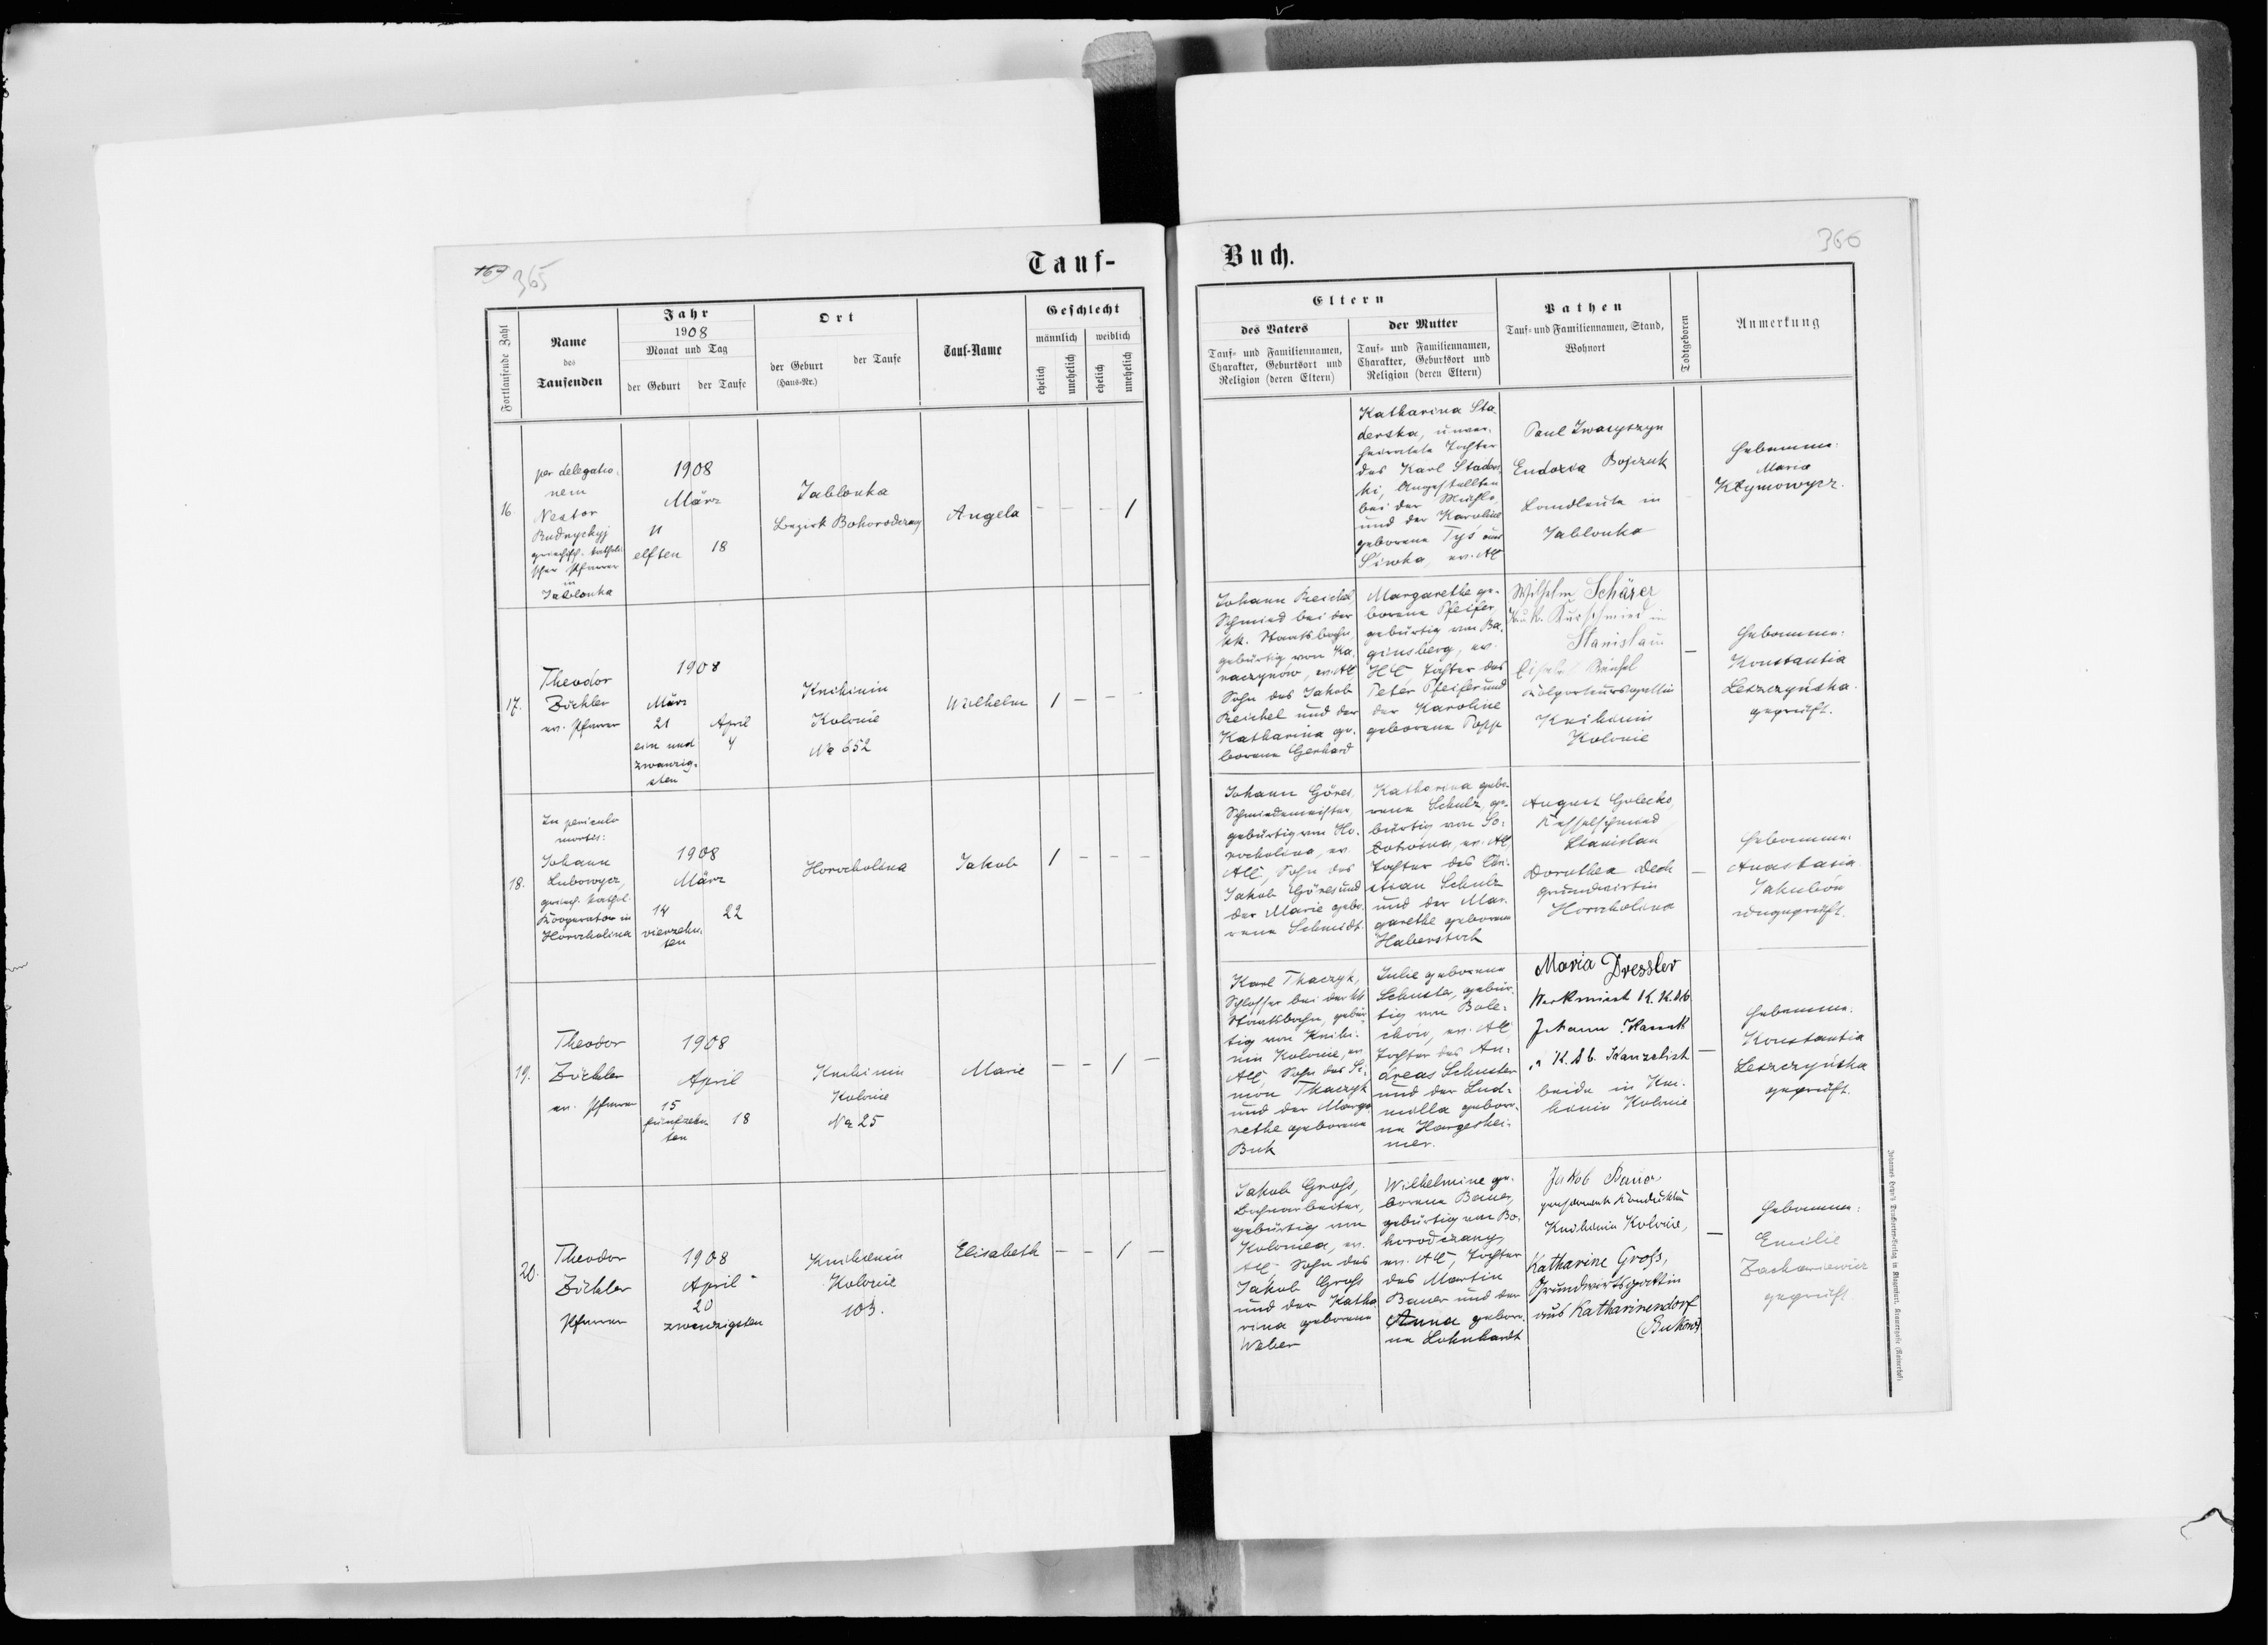 169 365
Tauf-
Fortlaufende Zahl
Name
des
Taufenden
Jahr
1908
Monat und Tag
der Geburt
der Taufe
Ort
der Geburt
(Haus-Nr.)
der Taufe
Tauf-Name
Geschlecht
männlich
weiblich
ehelich
unehelich
ehelich
unehelich
16.
per delegatio-
nem
Nestor
Rudnyckyj
griechisch-katholi-
scher Pfarrer
in
Jablonka
1908
März
11
elften
18
Jablonka
Bezirk Bohorodczany
Angela
- - - 1
17.
Theodor
Zöckler
ev. Pfarrer
1908
März
21
ein und
zwanzig-
sten
April
4
Knihinin
Kolonie
No 652
Wilhelm
1 - - -
18.
In periculo
mortis:
Johann
Lubowycz,
griech. kathol.
Kooperator in
Horocholina
1908
März
14
vierzehn-
ten
22
Horocholina
Jakob
1 - - -
19.
Theodor
Zöckler
ev. Pfarrer
1908
April
15
fünfzehn-
ten
18
Knihinin
Kolonie
No 25
Marie
- - 1 -
20.
Theodor
Zöckler
Pfarrer
1908
April
20
zwanzigsten
Knihinin
Kolonie
103.
Elisabeth
- - 1 -
366
Buch.
Eltern
des Vaters
Tauf- und Familiennamen,
Charakter, Geburtsort und
Religion (deren Eltern)
der Mutter
Tauf- und Familiennamen,
Charakter, Geburtsort und
Religion (deren Eltern)
Pathen
Tauf- und Familiennamen, Stand,
Wohnort
Todtgeboren
Anmerkung
Katharina Sta-
derska, unver-
heiratete Tochter
des Karl Staders-
ki, Angestellten
bei der
und der Karoline
geborene Tyś aus
Siwka, ev. AC
Paul Iwasyszyn
Eudoxia Bojczuk
Landleute in
Jablonka
Hebamme:
Maria
Klymowycz.
Johann Reichel,
Schmied bei der
kk. Staatsbahn,
gebürtig von Ka-
raczynów, ev. AC
Sohn des Jakob
Reichel und der
Katharina ge-
borene Gerhard
Margarethe ge-
borene Pfeifer,
gebürtig von Ba-
ginsberg, ev.
HC, Tochter des
Peter Pfeifer und
der Karoline
geborene Popp
Wilhelm Schärer
in
Stanislau
Kolporteursgattin
Knihinin
Kolonie
-
Hebamme:
Konstantia
Leszczyńska.
geprüft.
Johann Göres,
Schmiedemeister,
gebürtig von Ho-
rocholina, ev.
AC, Sohn des
Jakob Göres und
der Marie gebo-
rene Schmidt.
Katharina gebo-
rene Schulz, ge-
bürtig von So-
lotwina, ev. AC,
Tochter des Chri-
stian Schulz
und der Mar-
garethe geborene
Haberstock
August Golecko,
Kesselschmied
Stanislau
Dorothea Dech
Grundwirtin
Horocholina
-
Hebamme:
Anastasia
Jakubów
ungeprüft.
Karl Tkaczyk,
Schlosser bei der kk
Staatsbahn, gebür-
tig von Knihi-
nin Kolonie, ev.
AC, Sohn des Si-
mon Tkaczyk
und der Marga-
rethe geborene
Buk
Julie geborene
Schuster, gebür-
tig von Bole-
chów, ev. AC
Tochter des An-
dreas Schuster
und der Lud-
milla gebore-
ne Hargeshei-
mer.
Maria Dressler
K. K. Stb
Johann
K. Stb. Kanzelist
beide in Kni-
hinin Kolonie
-
Hebamme:
Konstantia
Leszczyńska
geprüft.
Jakob Groß,
Bahnarbeiter,
gebürtig von
Kolomea, ev.
AC, Sohn des
Jakob Groß
und der Katha-
rina geborene
Weber
Wilhelmine ge-
borene Bauer,
gebürtig von Bo-
horodczany,
ev. AC, Tochter
des Martin
Bauer und der
Anna gebore-
ne Lohnhardt
Jakob Bauer
Knihinin Kolonie,
Katharine Groß,
Grundwirtsgattin
aus Katharinendorf
(Bukow.)
-
Hebamme:
Emilie
Zachariewicz
geprüft